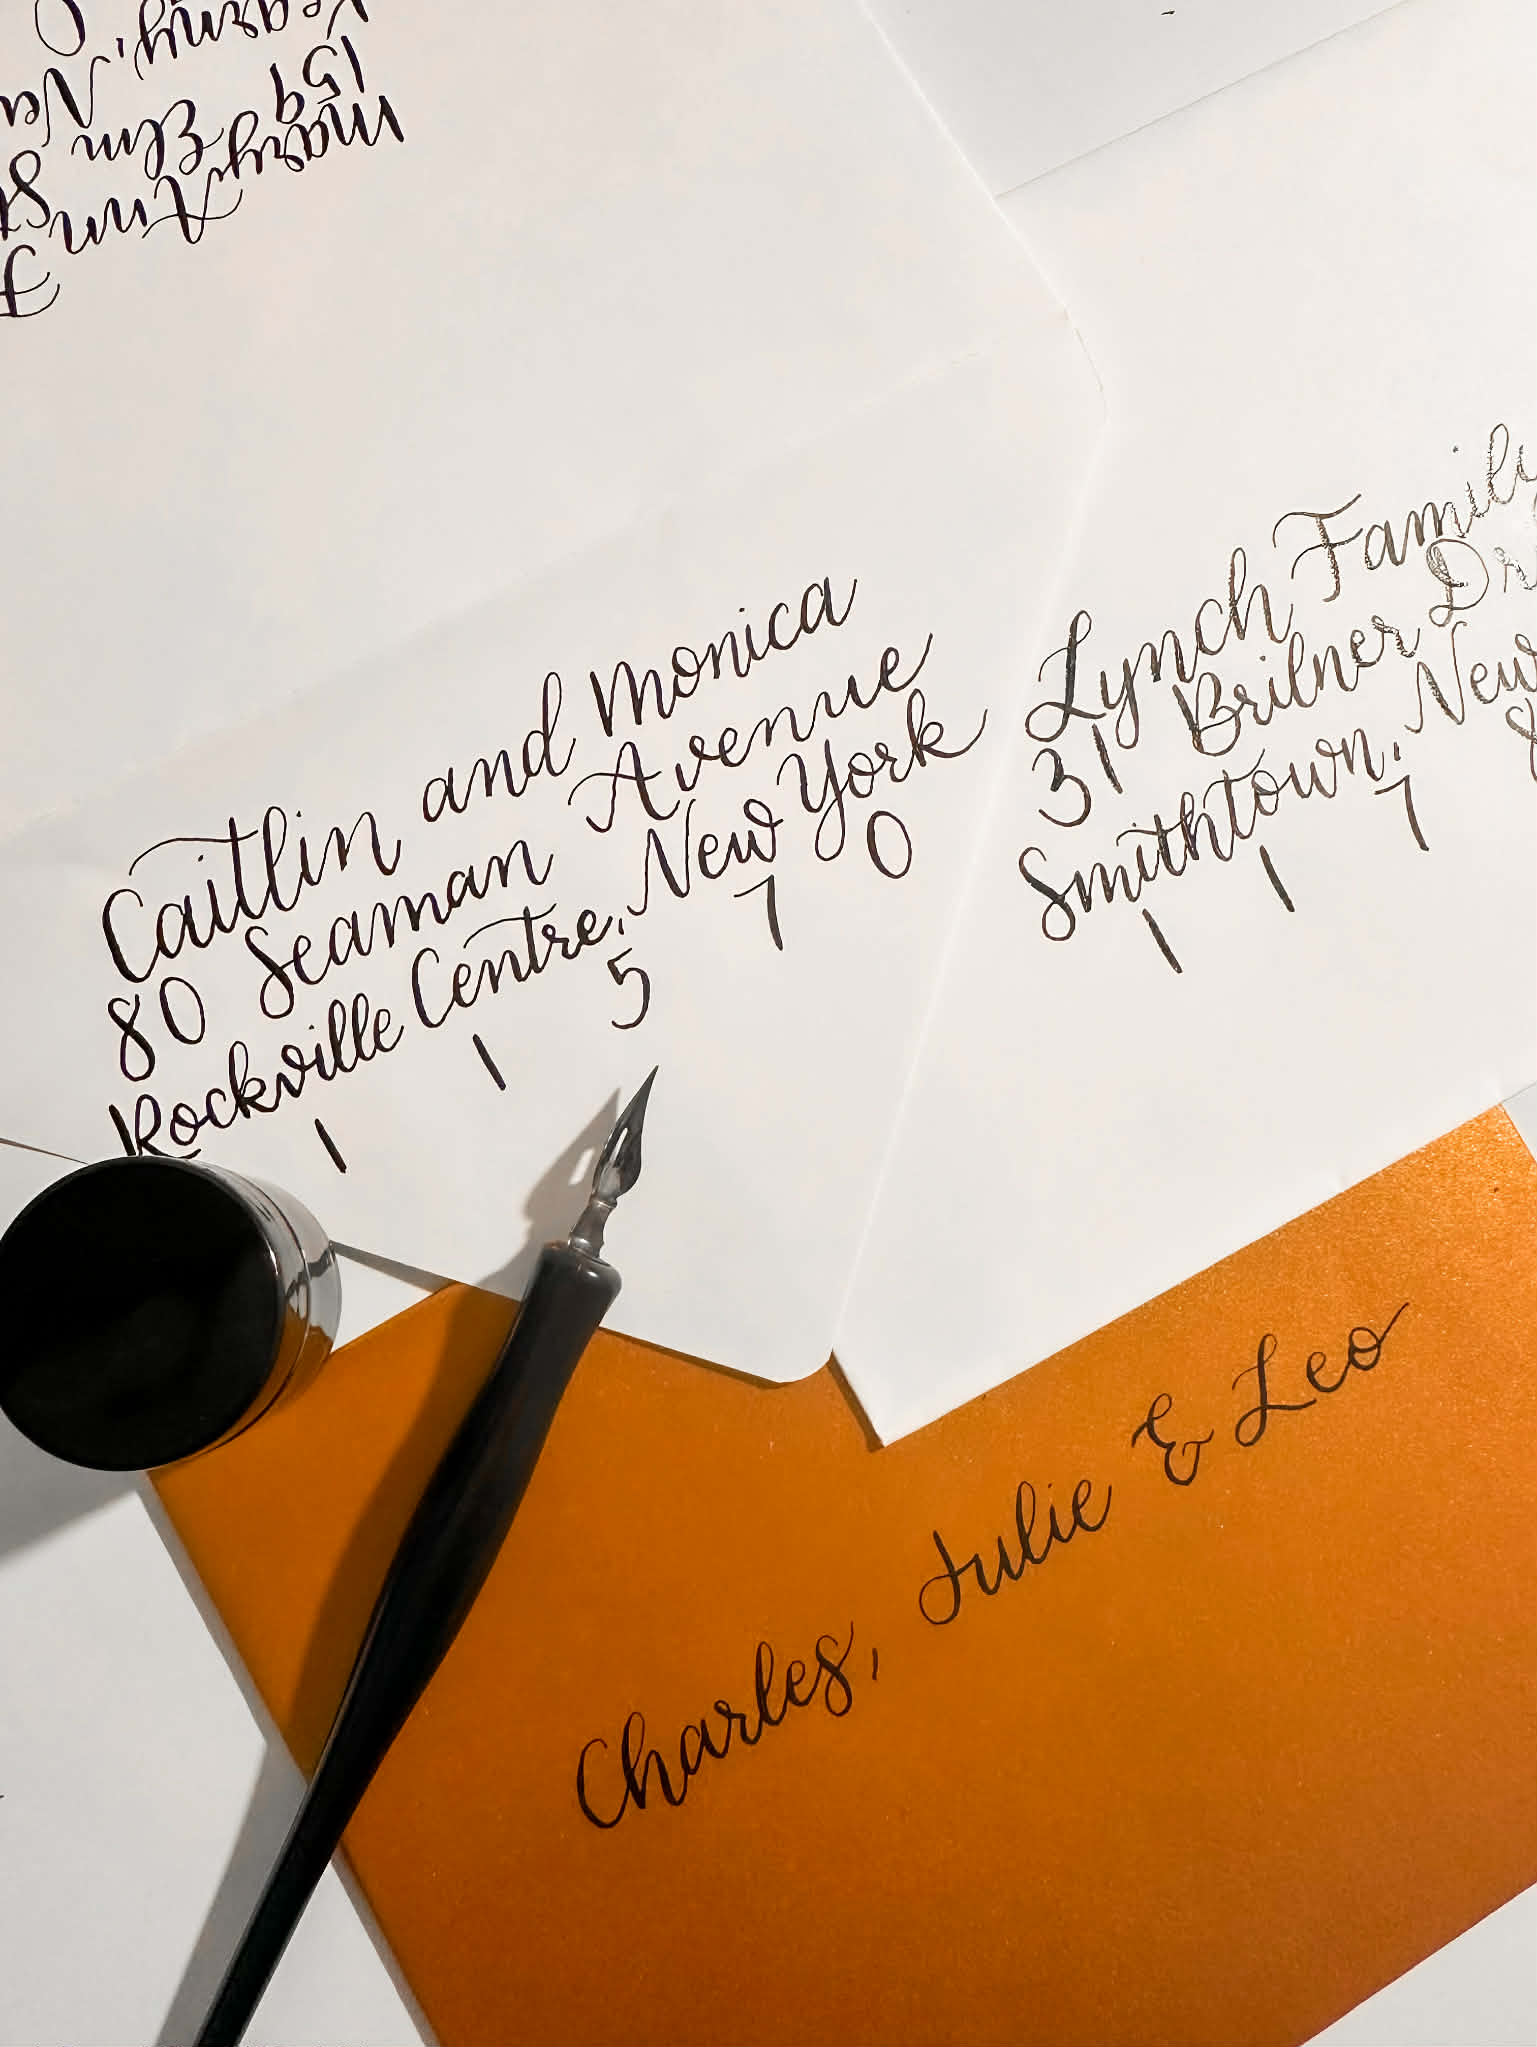 Mary Ann
159 Elm
Kearny,
Caitlin and Monica
80 Seaman Avenue
Rockville Centre, New York
1 1 5 7 0
Lynch Family
31 Brilner
Smithtown, New
1 1 7
Charles, Julie & Leo